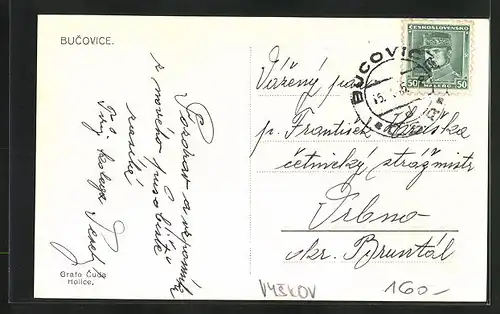 BUČOVICE.
Pozdrav a vzpomínku
z nového působiště
zasílá
Tvůj kolega
Grafo Čuda
Holice.
ČESKOSLOVENSKO
50 50
BUČOVICE
Vážený pan
p. František
četnický strážmistr
Vrbno
okr. Bruntál
VYŠKOV
160-